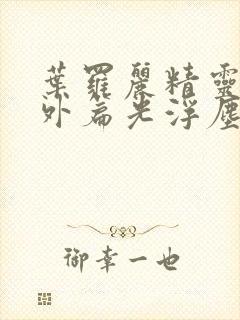 葉羅麗精靈
外扁光浮塵
御幸一也